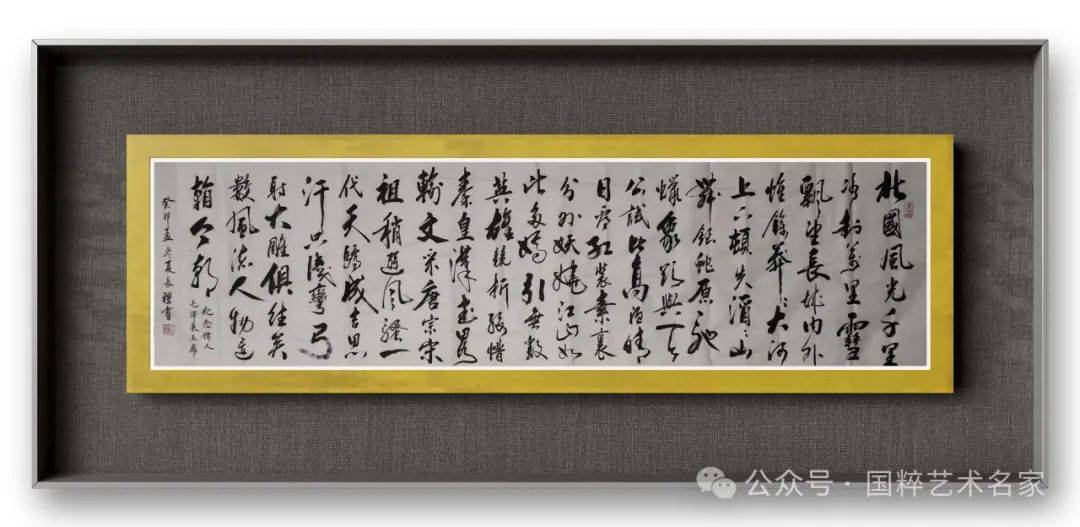 北國風光千里
冰封萬里雪
飄望長城內外
惟餘莽〻大河
上下頓失滔〻山
舞銀蛇原馳
蠟象欲與天
公試比高須晴
日看紅裝素裹
分外妖嬈江山如
此多嬌引無數
英雄競折腰惜
秦皇漢武略
輸文采唐宗宋
祖稍遜風騷一
代天驕成吉思
汗只識彎弓
射大雕俱往矣
數風流人物還
看今朝
紀念偉人
毛澤東主席
癸卯孟冬夏長書
公众号 · 国粹艺术名家